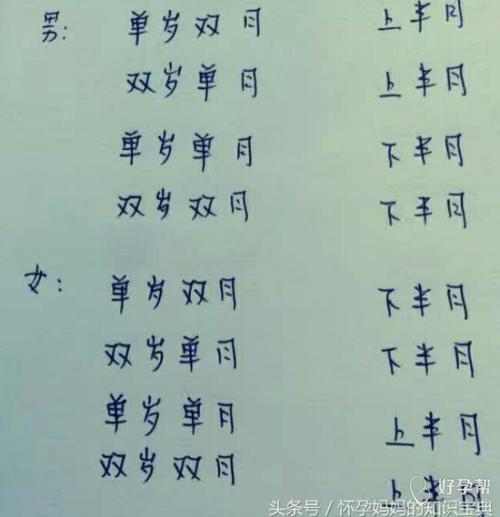 男: 单岁双月 上半月
双岁单月 上半月
单岁单月 下半月
双岁双月 下半月
女: 单岁双月 下半月
双岁单月 下半月
单岁单月 上半月
双岁双月 上半月
好孕帮
头条号／怀孕妈妈的知识宝典